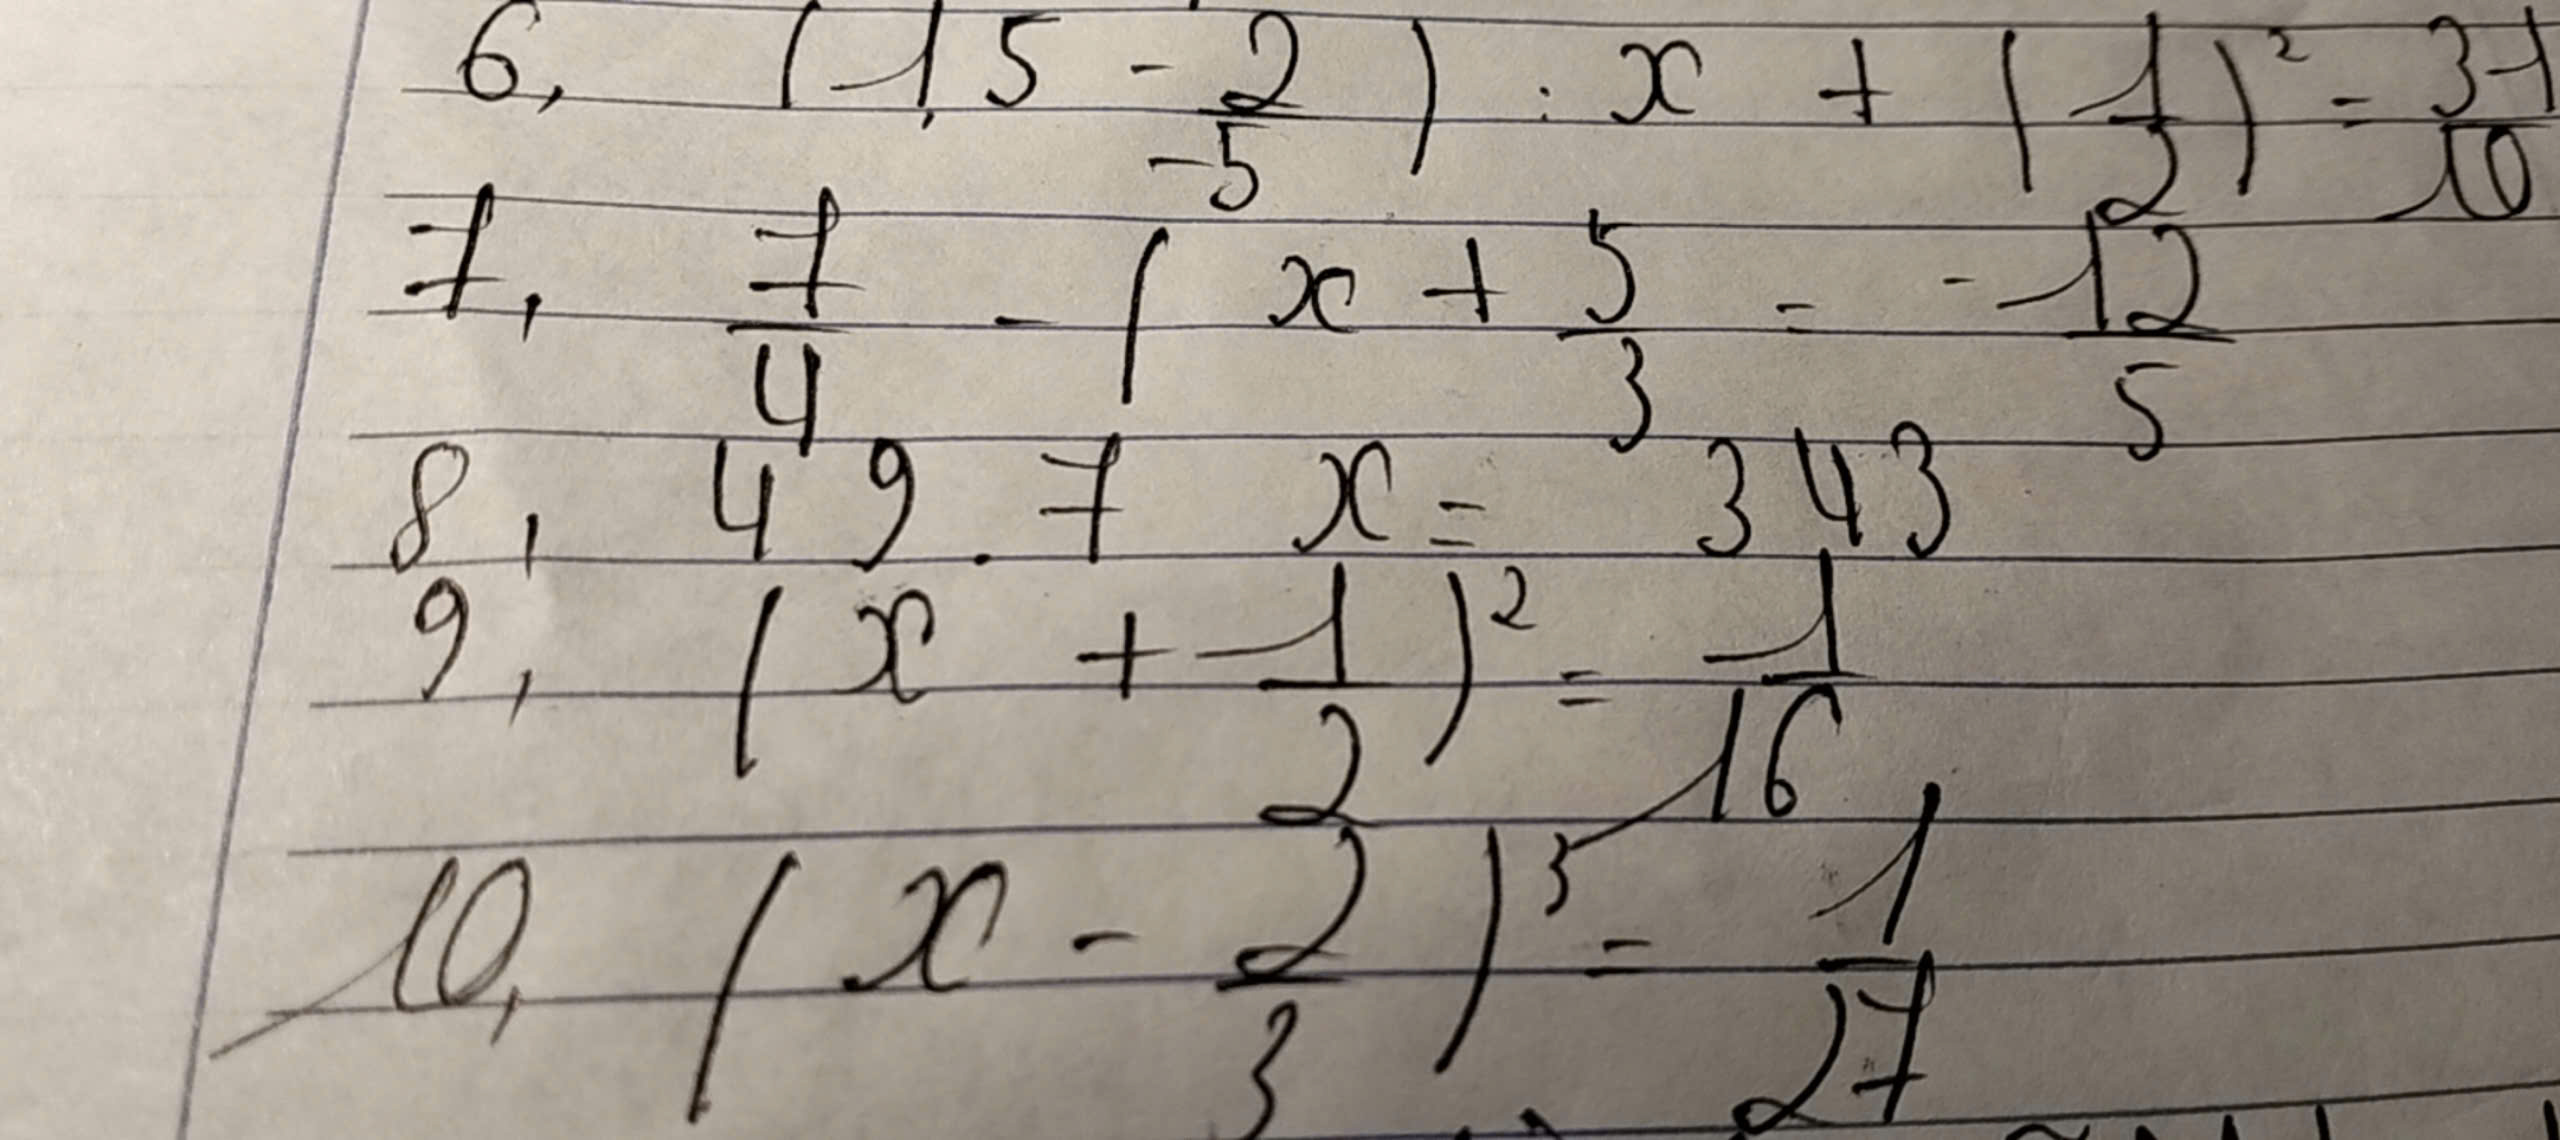 6, (1,5 - 2/-5) : x + (1/2)² = 31/10
7, 7/4 - ( x + 5/3 = - 12/5
8, 49 . 7 x = 343
9, (x + 1/2)² = 1/16
10, (x - 2/3)³ = 1/27